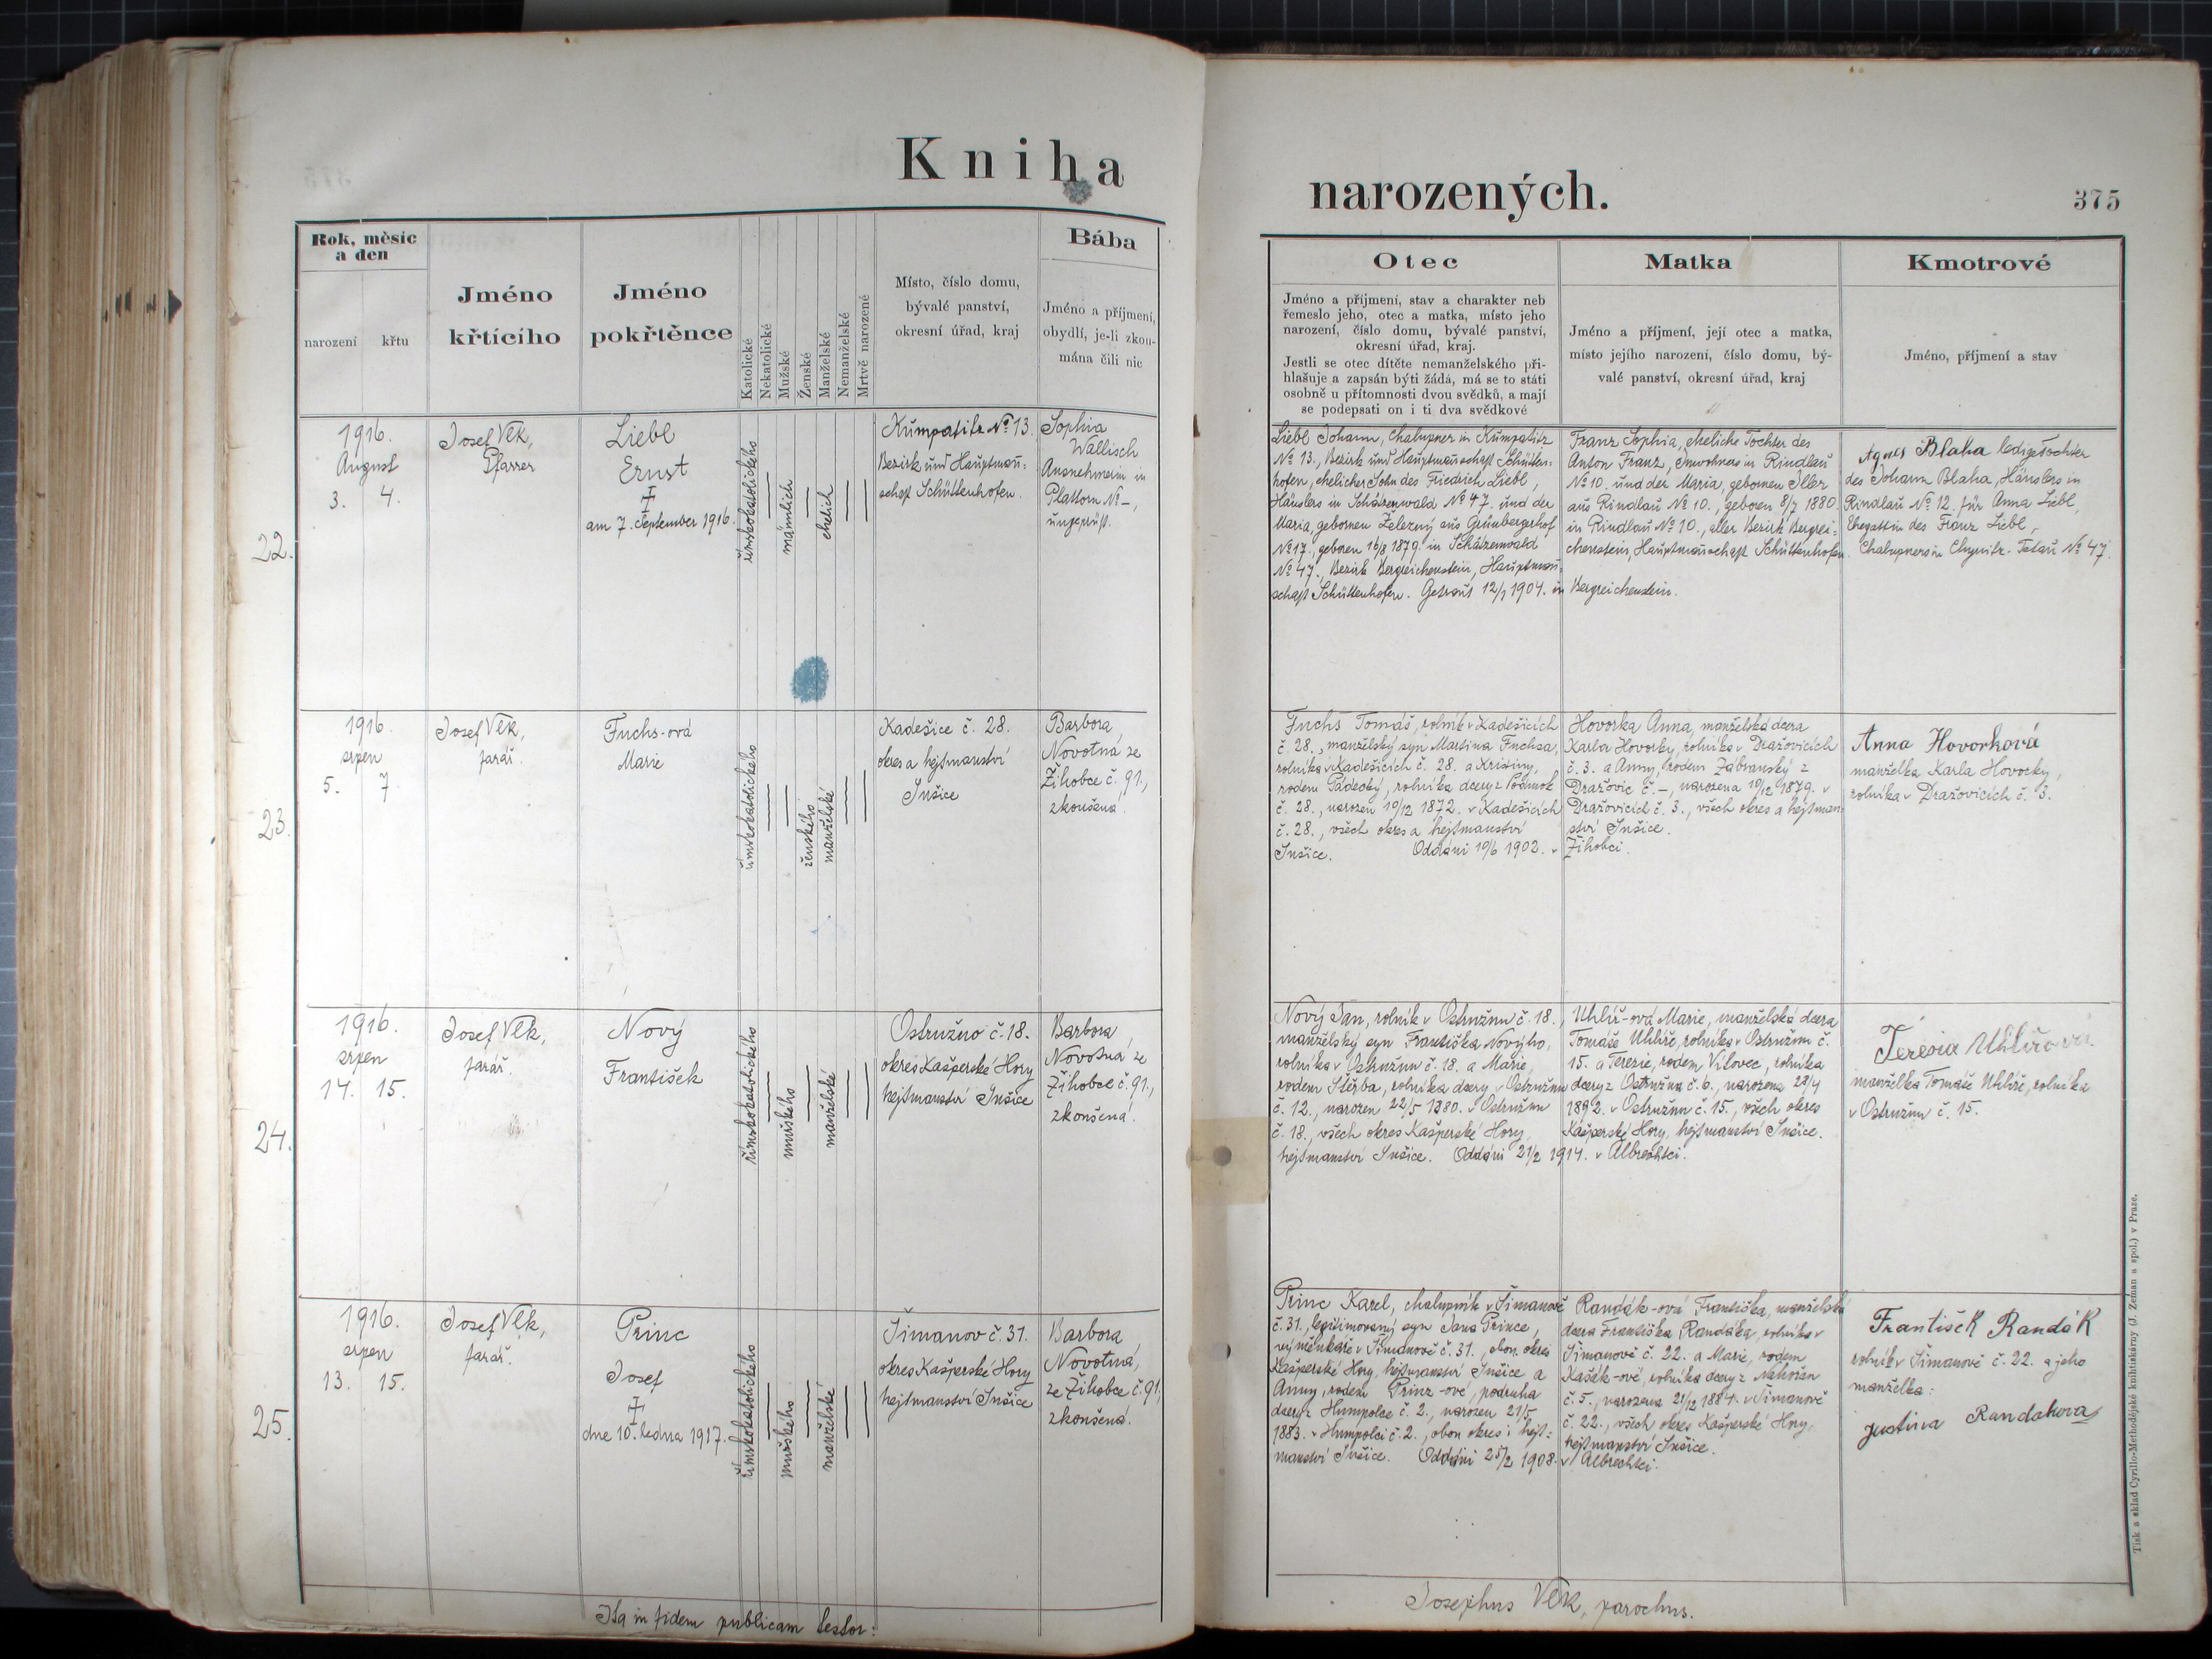 Kniha
narozených.
375
Rok, měsíc
a den
narození
křtu
Jméno
křtícího
Jméno
pokřtěnce
Katolické
Nekatolické
Mužské
Ženské
Manželské
Nemanželské
Mrtvě narozené
Místo, číslo domu,
bývalé panství,
okresní úřad, kraj
Bába
Jméno a příjmení,
obydlí, je-li zkou-
mána čili nic
Otec
Jméno a příjmení, stav a charakter neb
řemeslo jeho, otec a matka, místo jeho
narození, číslo domu, bývalé panství,
okresní úřad, kraj.
Jestli se otec dítěte nemanželského při-
hlašuje a zapsán býti žádá, má se to státi
osobně u přítomnosti dvou svědků, a mají
se podepsati on i ti dva svědkové
Matka
Jméno a příjmení, její otec a matka,
místo jejího narození, číslo domu, bý-
valé panství, okresní úřad, kraj
Kmotrové
Jméno, příjmení a stav
22.
1916.
August
3. 4.
Josef Vlk,
Pfarrer
Liebl
Ernst
am 7. September 1916.
římskokatolického
männlich
ehelich
Kumpatitz No 13.
Bezirk und Hauptman̄-
schaft Schüttenhofen.
Sophia
Wallisch
Ausnehmerin in
Plattorn No –,
ungeprüft.
Liebl Johann, Chalupner in Kumpatitz
No 13., Bezirk und Hauptman̄schaft Schütten-
hofen, ehelicher Sohn des Friedrich Liebl,
Häuslers in Schätzenwald No 47. und der
Maria, gebornen Železný aus Grünbergerhof
No 17., geboren 16/8 1879. in Schätzenwald
No 47., Bezirk Bergreichenstein, Hauptman̄-
schaft Schüttenhofen. Getraut 12/7 1904. in
Franz Sophia, eheliche Tochter des
Anton Franz, Inwohners in Rindlau
No 10. und der Maria, gebornen Iller
aus Rindlau No 10., geboren 8/7 1880
in Rindlau No 10., aller Bezirk Bergrei-
chenstein, Hauptman̄schaft Schüttenhofen.
Bergreichenstein.
Agnes Blaha ledige Tochter
des Johann Blaha, Häuslers in
Rindlau No 12. für Anna Liebl,
Ehegattin des Franz Liebl,
Chalupners in Chumitz-Tetau No 47.
23.
1916.
srpen
5. 7.
Josef Vlk,
farář.
Fuchs-ová
Marie
římskokatolického
ženského
manželské
Kadešice č. 28.
okres a hejtmanství
Sušice
Barbora
Novotná ze
Žihobce č. 91.,
zkoušená.
Fuchs Tomáš, rolník v Kadešicích
č. 28., manželský syn Martina Fuchsa,
rolníka v Kadešicích č. 28. a Kristiny,
rodem Pádecký, rolníka dcery z Podmok
č. 28., narozen 19/12 1872. v Kadešicích
č. 28., všech okres a hejtmanství
Sušice. Oddáni 10/6 1902. v
Hovorka Anna, manželská dcera
Karla Hovorky, rolníka v Dražovicích
č. 3. a Anny, rodem Zábranský z
Dražovic č. –, narozena 10/12 1879. v
Dražovicích č. 3., všech okres a hejtman-
ství Sušice.
Žihobci.
Anna Hovorková
manželka Karla Hovorky,
rolníka v Dražovicích č. 3.
24.
1916.
srpen
14. 15.
Josef Vlk,
farář.
Nový
František
římskokatolického
mužského
manželské
Ostružno č. 18.
okres Kašperské Hory
hejtmanství Sušice
Barbora
Novotná ze
Žihobce č. 91.,
zkoušená.
Nový Jan, rolník v Ostružnu č. 18.,
manželský syn Františka Nového,
rolníka v Ostružnu č. 18. a Marie,
rodem Štěrba, rolníka dcery v Ostružnu
č. 12., narozen 22/5 1880. v Ostružnu
č. 18., všech okres Kašperské Hory,
hejtmanství Sušice. Oddáni 21/2 1914. v Albrechtci.
Uhlíř-ová Marie, manželská dcera
Tomáše Uhlíře, rolníka v Ostružnu č.
15. a Terezie, rodem Vítovec, rolníka
dcery z Ostružna č. 6., narozena 28/4
1892. v Ostružnu č. 15., všech okres
Kašperské Hory, hejtmanství Sušice.
Teresia Uhlířova
manželka Tomáše Uhlíře, rolníka
v Ostružnu č. 15.
25.
1916.
srpen
13. 15.
Josef Vlk,
farář.
Princ
Josef
dne 10. ledna 1917.
římskokatolického
mužského
manželské
Šimanov č. 31.
okres Kašperské Hory
hejtmanství Sušice
Barbora
Novotná,
ze Žihobce č. 91.
zkoušená.
Princ Karel, chalupník v Šimanově
č. 31., legitimovaný syn Jana Prince,
výměnkáře v Šimanově č. 31., obou okres
Kašperské Hory, hejtmanství Sušice a
Anny, rodem Prinz-ové, podruha
dcery z Humpolce č. 2., narozen 21/5
1883. v Humpolci č. 2., obou okres i hejt-
manství Sušice. Oddáni 25/2 1908.
Randák-ová Františka, manželská
dcera Františka Randáka, rolníka v
Šimanově č. 22. a Marie, rodem
Kašák-ové, rolníka dcery z Nahořan
č. 5., narozena 21/12 1884. v Šimanově
č. 22., všech okres Kašperské Hory,
hejtmanství Sušice.
v Albrechtci.
František Randák
rolník v Šimanově č. 22. a jeho
manželka:
Justina Randakova
Ita in fidem publicam testor:
Josephus Vlk, parochus.
Tisk a sklad Cyrillo-Methodějské knihtiskárny (J. Zeman a spol.) v Praze.